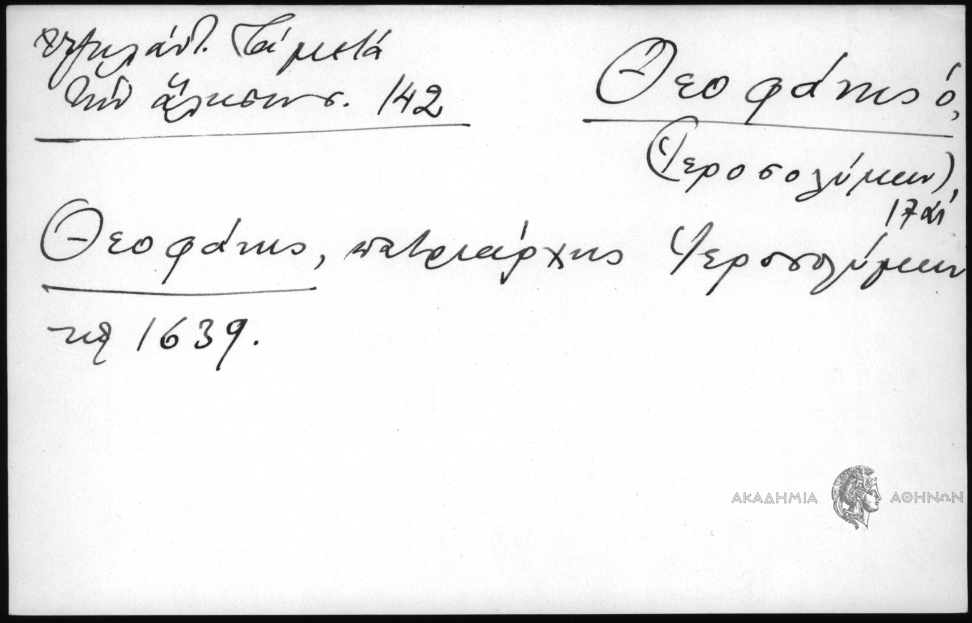 Ὑψηλάντ. Τὰ μετὰ
τὴν ἅλωσιν σ. 142
Θεοφάνης ὁ,
(Ἱεροσολύμων),
17 αἰ
Θεοφάνης, πατριάρχης Ἱεροσολύμων
τῷ 1639.
ΑΚΑΔΗΜΙΑ ΑΘΗΝΩΝ